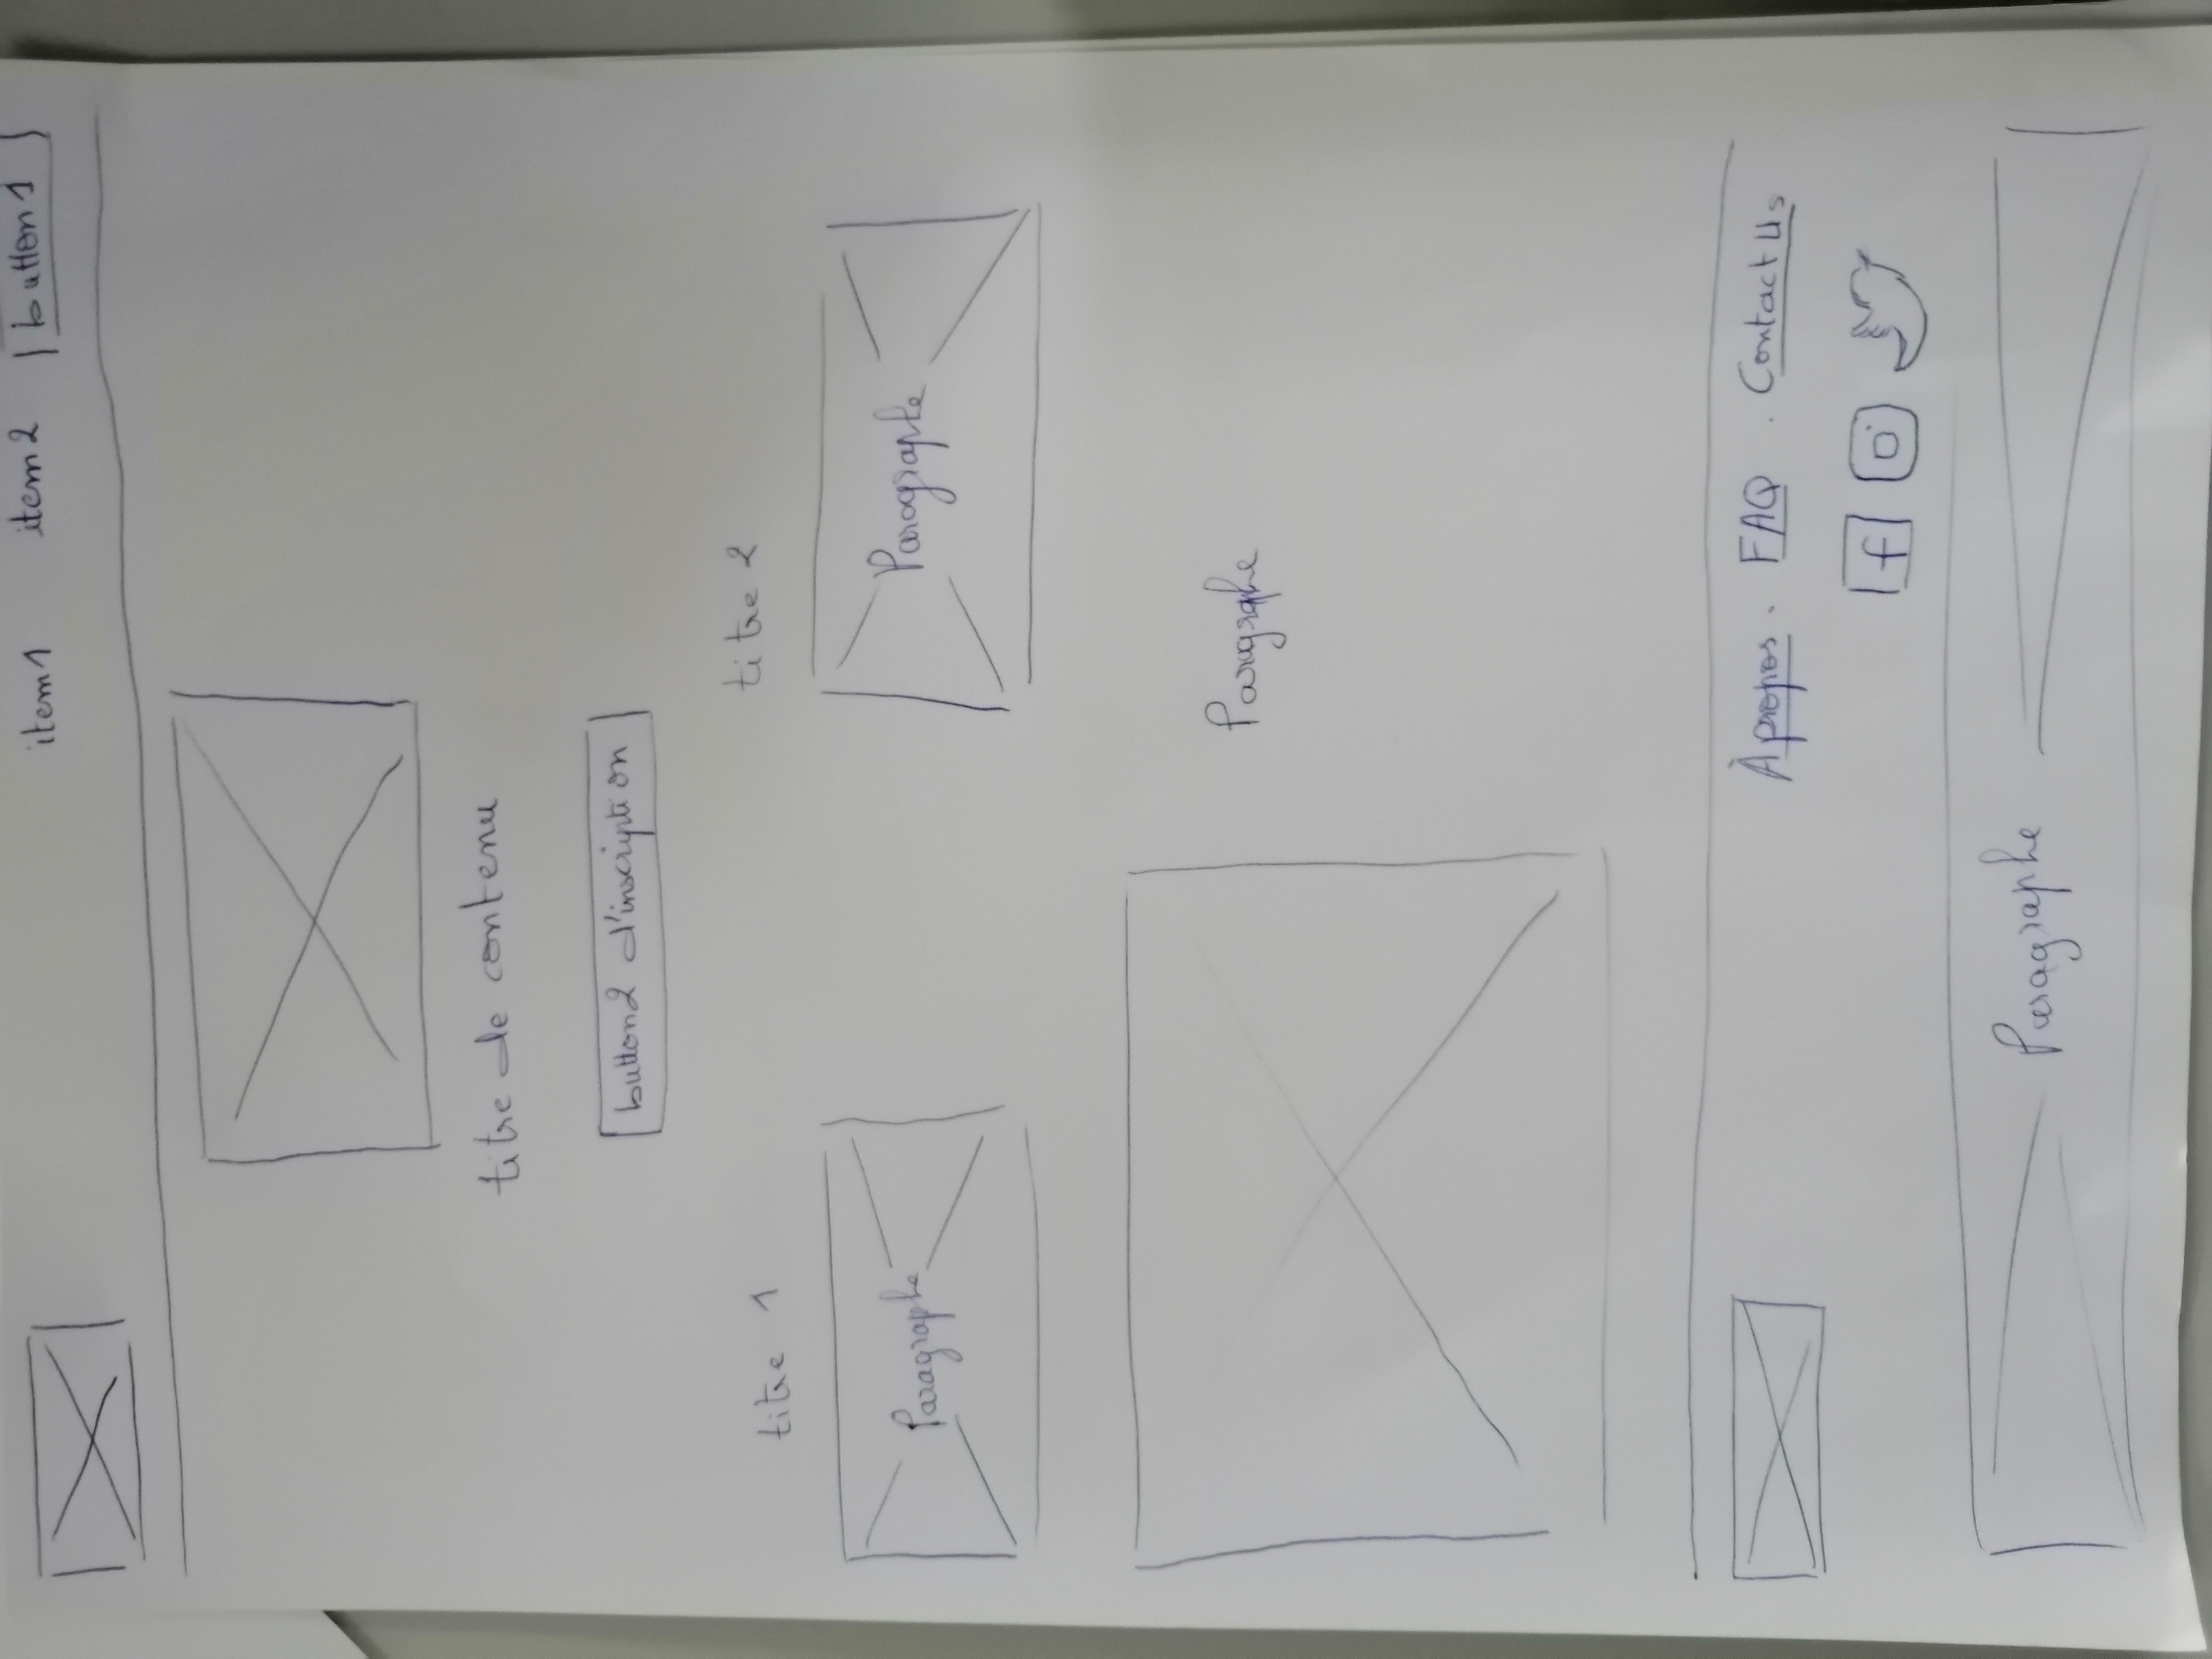 item1 item2 button1
titre de contenu
button2 d'inscription
titre 1 titre 2
Paragraphe Paragraphe
Paragraphe
À propos . FAQ . Contact Us
f
Paragraphe